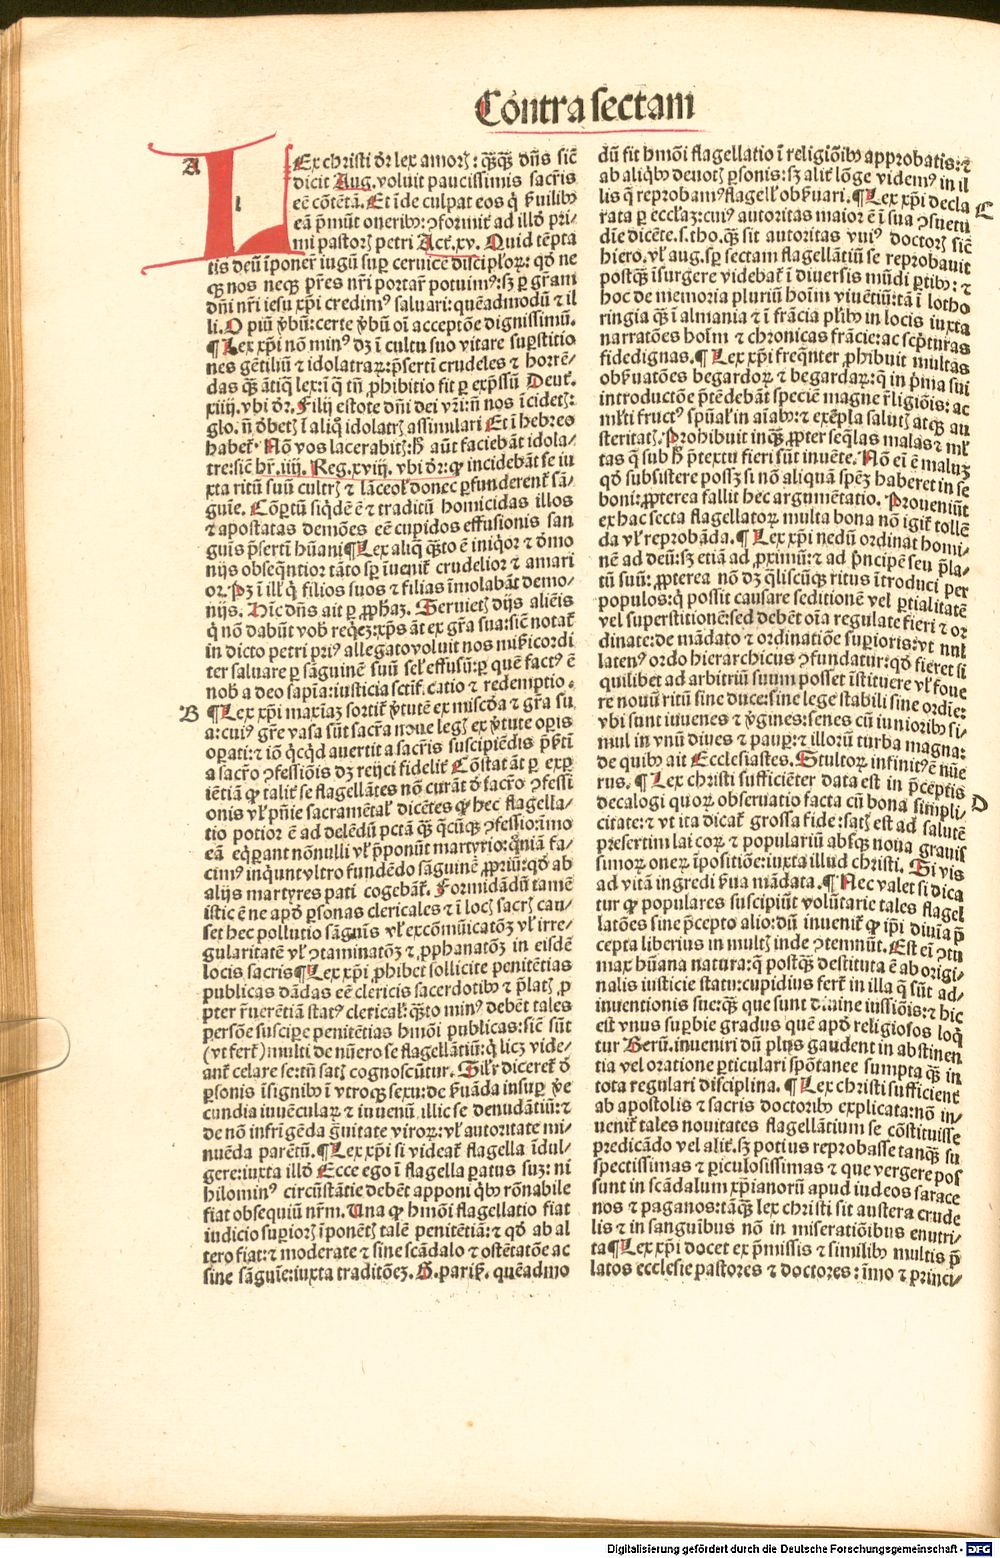 Cōntra sectam
A
LEx christi dr̄ lex amorꝭ: qꝫqꝫ dn̄s sic̄
dicit Aug. voluit paucissimis sacrīs
eē cōtētā. Et īde culpat eos q̇ ẜuilibꝰ
eā p̄mūt oneribꝰ: ꝯformit̄ ad illō pri-
mi pastorꝭ petri Act̄. xv. Quid tēpta
tis deū īponer̄ iugū suꝑ cervicē discipl'oꝝ: qō ne
qꝫ nos neqꝫ pr̄es nr̄i portar̄ potuimꝰ: sꝫ ꝑ gr̄am
dn̄i nr̄i iesu xp̄i credimꝰ saluari: quēadmodū ⁊ il
li. O piū v̄bū: certe v̄bū oī acceptōe dignissimū.
¶ Lex xp̄i nō minꝰ dꝫ ī cultu suo vitare suꝑstitio
nes gētiliū ⁊ idolatraꝝ: p̄serti crudeles ⁊ horrē-
das qꝫ ātiq̄ lex: ī q̄ tn̄ ꝓhibitio fit ꝑ exp̄ssū Deut̄.
xiiij. vbi dr̄. Filij estote dn̄i dei vr̄i: n̄ nos īcidetꝭ:
glo. n̄ dꝫbetꝭ ī aliq̄ idolatrꝭ assimilari Et ī hebreo
habet̄. Nō vos lacerabitꝭ: h̄ aūt faciebāt idola-
tre: sic̄ hr̄. iiij. Reg. xviij. vbi dr̄: ꝙ incidebāt se iu
xta ritū suū cultrꝭ ⁊ lāceol' donec ꝑfunderent̄ sā-
guīe. Cōꝑtū siqdē ē ⁊ traditū homicidas illos
⁊ apostatas demōes eē cupidos effusionis san
guis p̄sertī hūani ¶ Lex aliq̄ qꝫto ē iniq̇or ⁊ dꝫmo
nijs obseq̄ntior tāto sꝑ īuenit̄ crudelior ⁊ amari
or. Pꝫ ī ill' q̇ filios suos ⁊ filias īmolabāt demo-
nijs. Hīc dn̄s ait ꝑ ꝓph̄aꝫ. Seruietꝭ dijs alieīs
q̇ nō dabūt vob̄ reqēꝫ: xp̄s āt ex gr̄a sua: sic̄ notat̄
in dicto petri priꝰ allegato voluit nos mīs̄icordi
ter saluare ꝑ sāguinē suū sel' effusū: ꝑ quē factꝰ ē
nob̄ a deo sapīa: iusticia sctīfi catio ⁊ redemptio.
B
¶ Lex xp̄i maxiāꝫ sortit̄ v̄tutē ex mīscdꝫa ⁊ gr̄a su
a: cuiꝰ gr̄e vasa sūt sacr̄a noue legꝭ ex v̄tute oꝑis
oꝑati: ⁊ iō q̇cqd auertit a sacrīs suscipiēdis p̄serti
a sacrō ꝯfessiōis dꝫ reijci fidelit̄ Cōstat āt ꝑ exꝑ
iētiā ꝙ talit̄ se flagellātes nō curāt dꝫ sacrō ꝯfessi
onis vl' pn̄ie sacramētal' dicētes ꝙ hec flagella-
tio potior ē ad delēdū pctā qꝫ q̄cūqꝫ ꝯfessio: īmo
eā eq̄ꝑant nōnulli vl' p̄ponūt martyrio: qm̄iā fa-
cimꝰ inq̇unt vltro fundēdo sāguinē ꝓpriū: qō ab
alijs martyres pati cogebāt̄. Formidādū tamē
istic ē ne apō ꝑsonas clericales ⁊ ī locꝭ sacrꝭ cau-
set hec pollutio sāguīs vl' excōmūicatōꝫ vl' irre-
gularitatē vl' ꝯtaminatōꝫ ⁊ ꝓphanatōꝫ in eisdē
locis sacris ¶ Lex xp̄i ꝓhibet sollicite penitētias
publicas dādas eē clericis sacerdotibꝰ ⁊ p̄latꝭ ꝓ
pter r̄uerētiā statꝰ clerical': qꝫto minꝰ debēt tales
ꝑsōe suscipe penitētias hmōi publicas: sic̄ sūt
(vt fert̄) multi de nūero se flagellātiū: q̇ licꝫ vide-
ant̄ celare se: tn̄ satꝭ cognoscūtur. Sil'r diceret̄ dꝫ
ꝑsonis īsignibꝰ ī vtroqꝫ sexu: de ẜuāda insuꝑ v̄e
cundia iuuēcularꝝ ⁊ iuuenū, illic se denudātiū: ⁊
de nō infrīgēda gͣuitate viroꝝ: vl' autoritate mi-
nuēda parētū. ¶ Lex xp̄i si videat̄ flagella īdul-
gere: iuxta illō Ecce ego ī flagella ꝑatus suꝫ: ni
hilominꝰ circūstātie debēt apponi q̇bꝰ rōnabile
fiat obsequiū nr̄m. Una ꝙ hmōi flagellatio fiat
iudicio suꝑiorꝭ īponētꝭ talē penitētiā: ⁊ qō ab al
tero fiat: ⁊ moderate ⁊ sine scādalo ⁊ ostētatōe ac
sine sāguīe: iuxta traditōeꝫ. G. parisi. quēadmo
dū fit hmōi flagellatio ī religiōibꝰ approbatis: ⁊
ab aliq̇bꝰ deuotꝭ ꝑsonis: sꝫ alit̄ lōge videmꝰ in il
lis q̄ reprobamꝰ flagell' obẜuari. ¶ Lex xp̄i decla
C
rata ꝑ eccl'aꝫ: cuiꝰ autoritas maior ē ī sua ꝯsuetu
dīe dicēte. s. tho. qꝫ sit autoritas vniꝰ doctorꝭ sic̄
hiero. vl' aug. sꝑ sectam flagellātiū se reprobauit
postqꝫ īsurgere videbat̄ ī diuersis mūdi ꝑtibꝰ: ⁊
hoc de memoria pluriū hoīm viuētiū: tā ī lotho
ringia qꝫ ī almania ⁊ ī frācia pl'ibꝰ in locis iuxta
narratōes hoīm ⁊ chronicas frācie: ac sc̄pturas
fidedignas. ¶ Lex xp̄i freq̄nter ꝓhibuit multas
obẜuatōes begardoꝝ ⁊ begardaꝝ: q̄ in p̄ma sui
introductōe p̄tēdebāt speciē magne r̄ligiōis: ac
ml'ti fructꝰ spūal' in aīabꝰ: ⁊ exēpla salutꝭ atqꝫ au
steritatꝭ. Prohibuit inqꝫ ꝓpter seq̄las malas ⁊ ml'
tas q̄ sub h̄ p̄textu fieri sūt inuēte. Nō eī ē maluꝫ
qō subsistere possꝫ si nō aliquā spēꝫ haberet in se
boni: ꝓpterea fallit hec argumētatio. Proueniūt
ex hac secta flagellatoꝝ multa bona nō igit̄ tollē
da vl' reprobāda. ¶ Lex xp̄i nedū ordinat homi-
nē ad deū: sꝫ etiā ad ꝓximū: ⁊ ad p̄ncipē seu p̄la-
tū suū: ꝓpterea nō dꝫ q̄liscūqꝫ ritus ītroduci per
populos: q̇ possit causare seditionē vel ꝑtialitatē
vel superstitionē: sed debēt oīa regulate fieri ⁊ or
dinate: de mādato ⁊ ordinatiōe suꝑioris: vt nul
latenꝰ ordo hierarchicus ꝯfundatur: qō fieret si
quilibet ad arbitriū suum posset īstituere vl' foue
re nouū ritū sine duce: sine lege stabili sine ordīe:
vbi sunt iuuenes ⁊ v̄gines: senes cū iunioribꝰ si-
mul in vnū diues ⁊ pauꝑ: ⁊ illorū turba magna:
de quibꝰ ait Ecclesiastes. Stultoꝝ infinitꝰ ē nūe
rus. ¶ Lex christi sufficiēter data est in p̄ceptis
decalogi quoꝝ obseruatio facta cū bona simpli-
D
citate: ⁊ vt ita dicat̄ grossa fide: satꝭ est ad salutē
presertim laicoꝝ ⁊ populariū absqꝫ noua grauis
simoꝝ oneꝝ īpositiōe: iuxta illud christi. Si vis
ad vitā ingredi ẜua mādata. ¶ Nec valet si dica
tur ꝙ populares suscipiūt volūtarie tales flagel
latōes sine p̄cepto alio: dū inuenit̄ ꝙ ip̄i diuīa p̄
cepta liberius in multꝭ inde ꝯtemnūt. Est eī ꝯtu
max hūana natura: q̄ postqꝫ destituta ē ab origi-
nalis iusticie statu: cupidius fert̄ in illa q̄ sūt ad-
inuentionis sue: qꝫ que sunt diuine iussiōis: ⁊ hic
est vnus suꝑbie gradus quē apō religiosos loq̄
tur Bern̄. inueniri dū plꝰ gaudent in abstinen
tia vel oratione ꝑticulari spōtanee sumpta qꝫ in
tota regulari disciplina. ¶ Lex christi sufficient̄
ab apostolis ⁊ sacris doctoribꝰ explicata: nō in-
uenit̄ tales nouitates flagellātium se cōstituisse
predicādo vel alit̄. sꝫ potius reprobasse tanqꝫ su
spectissimas ⁊ ꝑiculosissimas ⁊ que vergere pos
sunt in scādalum xp̄ianorū apud iudeos sarace
nos ⁊ paganos: tāqꝫ lex christi sit austera crude
lis ⁊ in sanguibus nō in miseratiōibus enutri-
ta ¶ Lex xp̄i docet ex p̄missis ⁊ similibꝰ multis p̄
latos ecclesie pastores ⁊ doctores: īmo ⁊ princi-
Digitalisierung gefördert durch die Deutsche Forschungsgemeinschaft - DFG